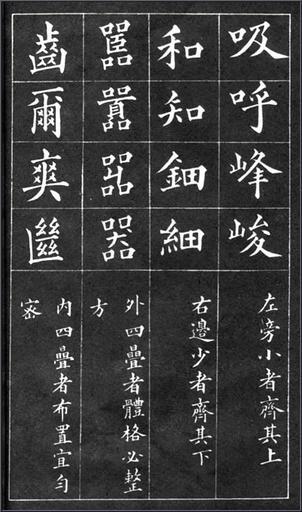 吸呼峰峻
左傍小者齊其上
和知鈿細
右邊少者齊其下
嚚囂器
外四疊者體格必整
方
齒爾爽
內四疊者布置宜勻
密